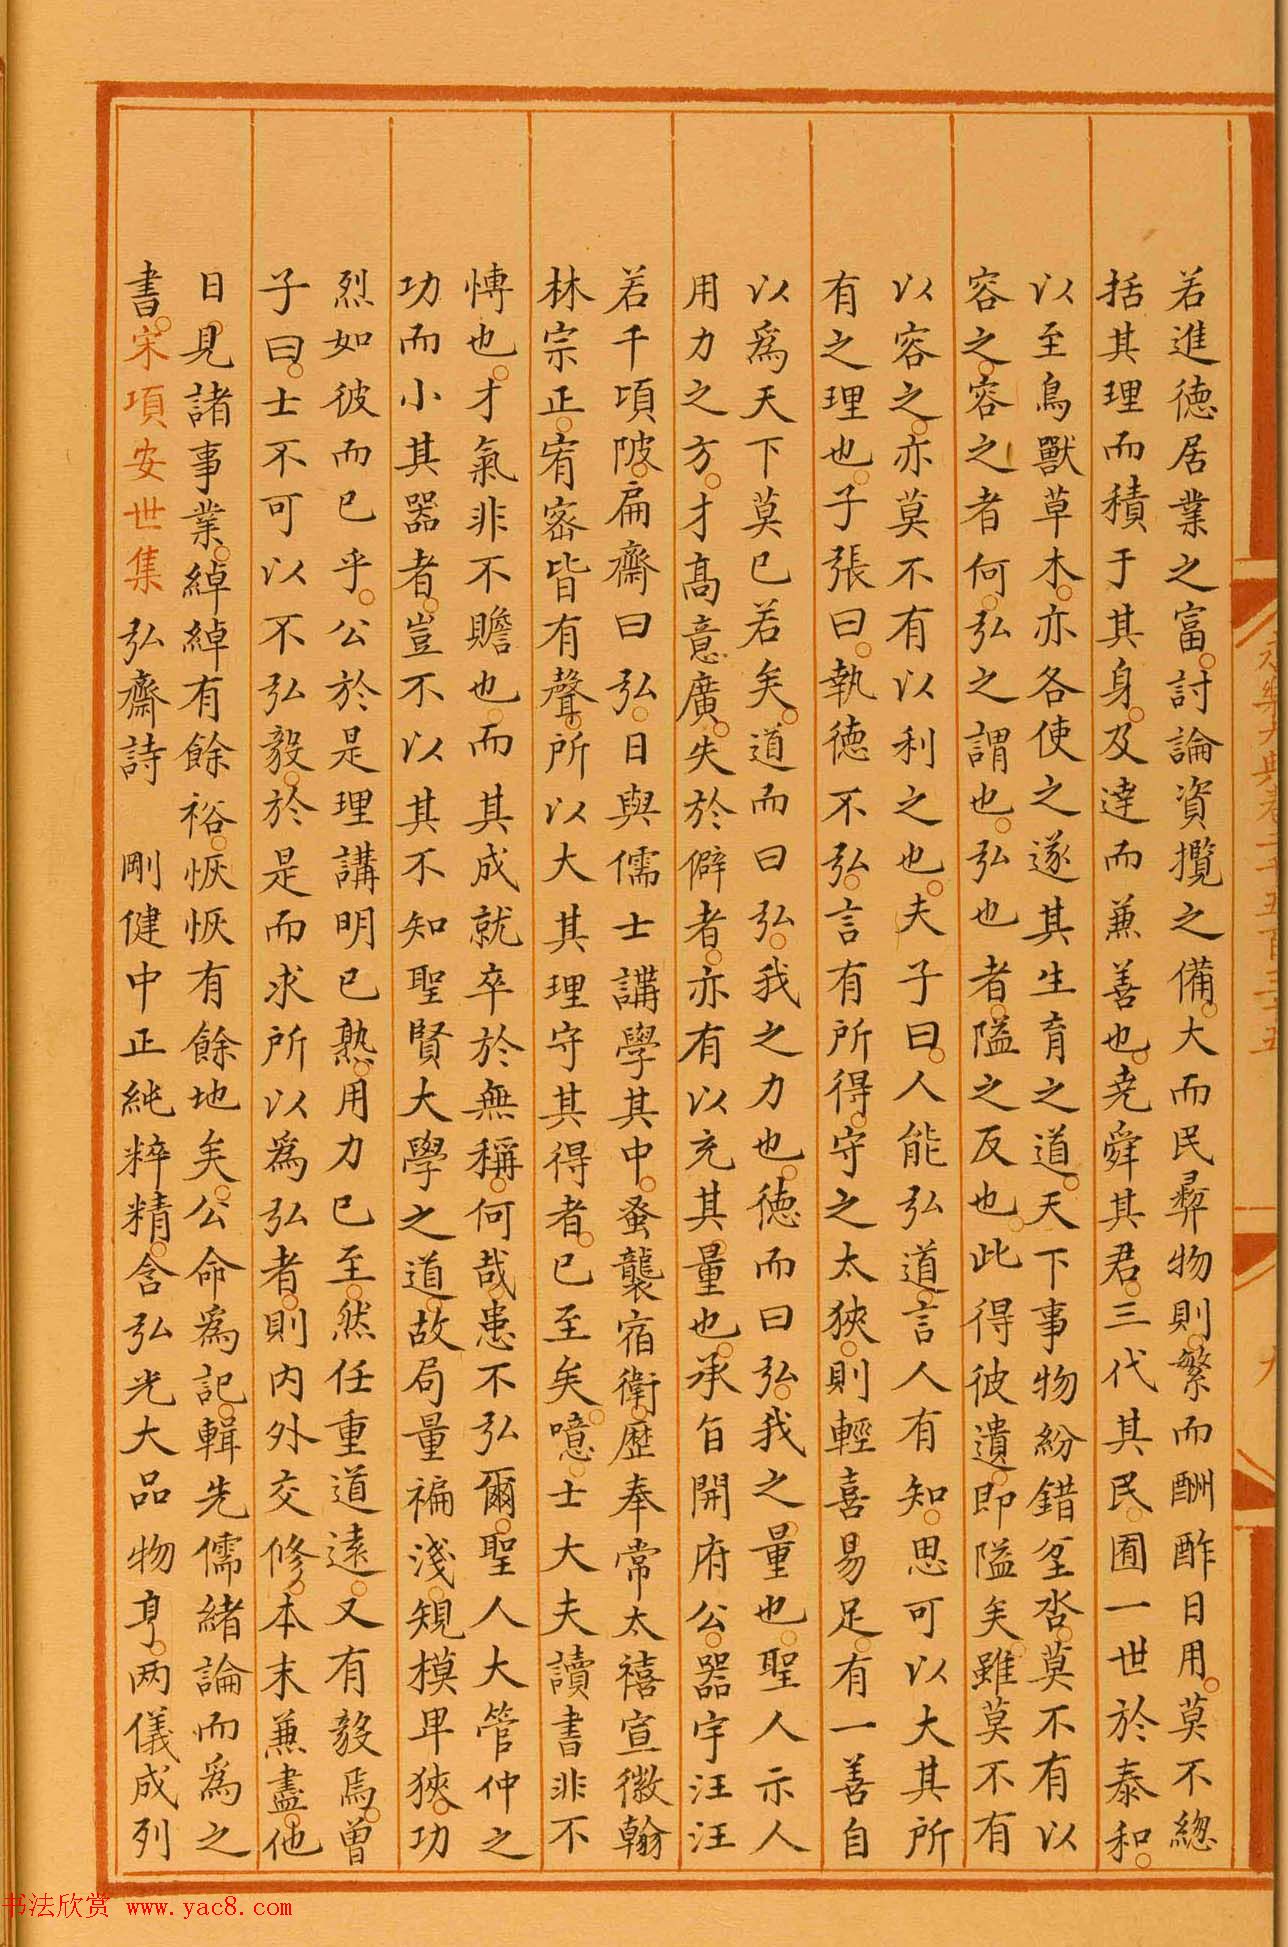 若進德居業之富討論資攬之備大而民彛物則繁而酬酢日用莫不總
括其理而積于其身及達而兼善也堯舜其君三代其民囿一世於泰和
以至鳥獸草木亦各使之遂其生育之道天下事物紛錯坌沓莫不有以
容之容之者何弘之謂也弘也者隘之反也此得彼遺即隘矣雖莫不有
以容之亦莫不有以利之也夫子曰人能弘道言人有知思可以大其所
有之理也子張曰執德不弘言有所得守之太狹則輕喜易足有一善自
以爲天下莫已若矣道而曰弘我之力也德而曰弘我之量也聖人示人
用力之方才高意廣失於僻者亦有以充其量也承旨開府公器宇汪汪
若千項陂扁齋曰弘日與儒士講學其中蚤襲宿衛歷奉常太禧宣徽翰
林宗正宥密皆有聲所以大其理守其得者已至矣噫士大夫讀書非不
慱也才氣非不贍也而其成就卒於無稱何哉患不弘爾聖人大管仲之
功而小其器者豈不以其不知聖賢大學之道故局量褊淺規模卑狹功
烈如彼而已乎公於是理講明已熟用力已至然任重道遠又有毅焉曾
子曰士不可以不弘毅於是而求所以爲弘者則内外交修本末兼盡他
日見諸事業綽綽有餘裕恢恢有餘地矣公命爲記輯先儒緒論而爲之
書宋項安世集弘齋詩 剛健中正純粹精含弘光大品物亨两儀成列
永樂大典卷二千五百三十五
九
书法欣赏 www.yac8.com